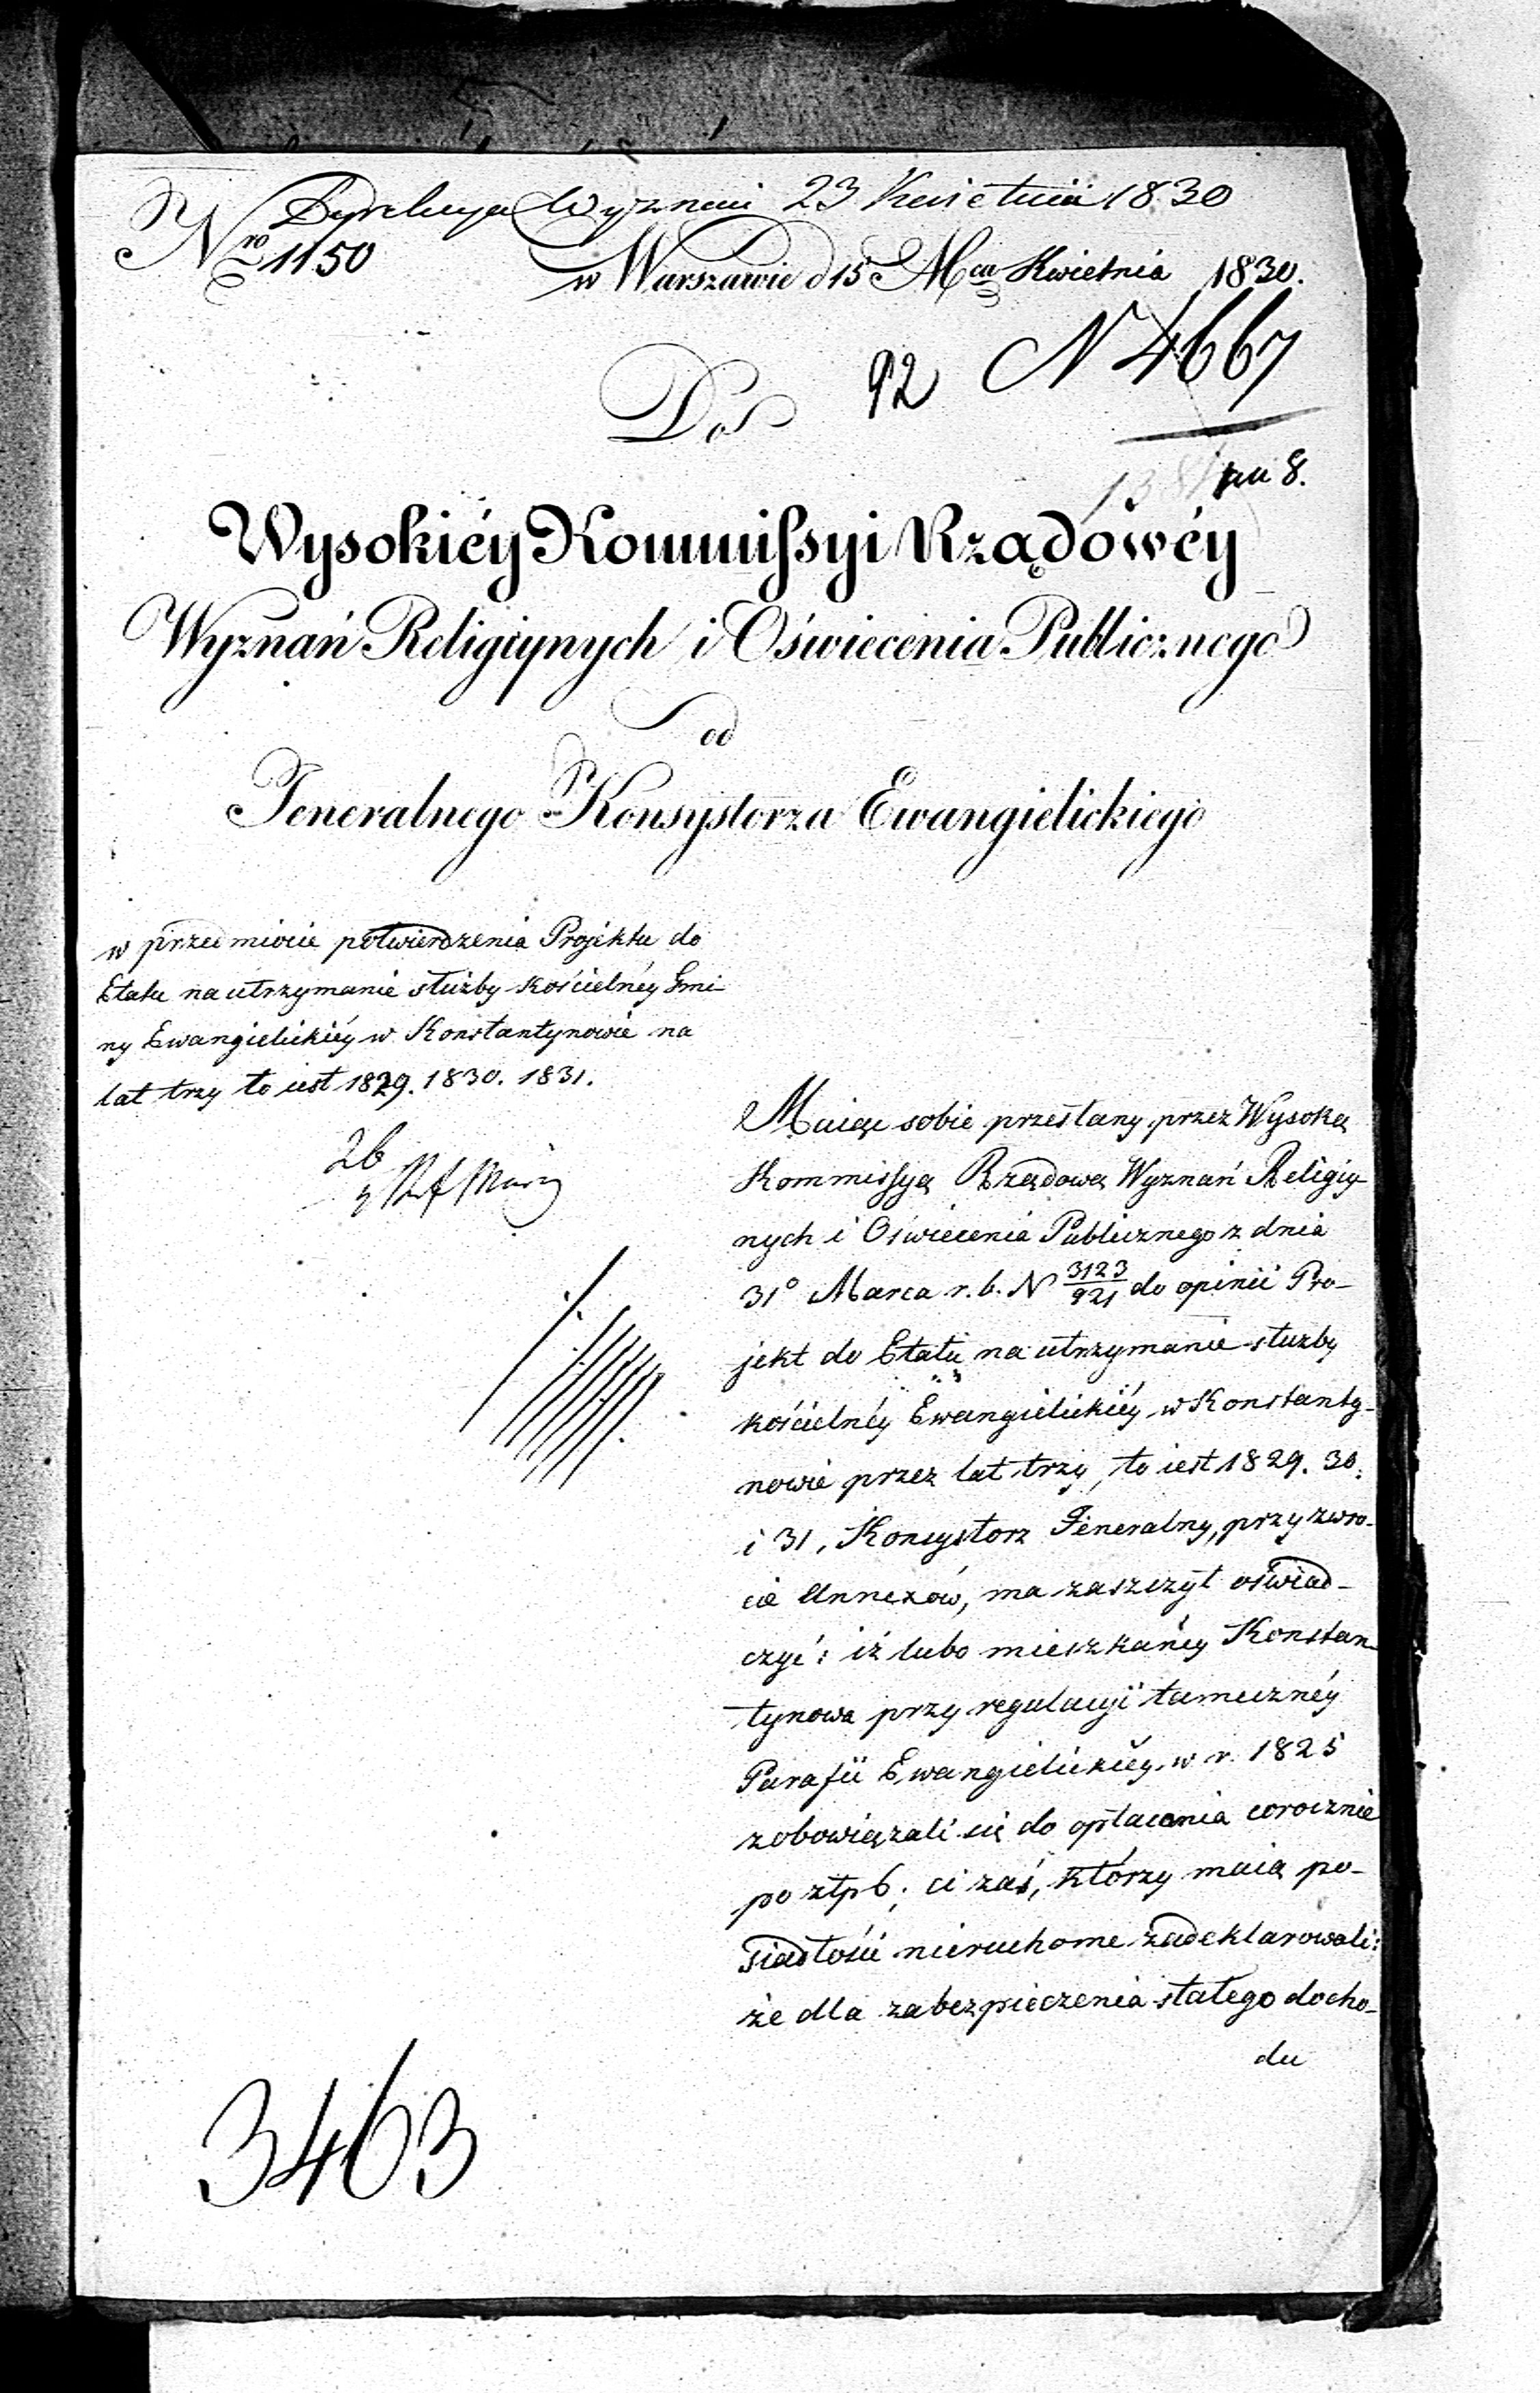 Dyrekcya Wyznań 23 Kwietnia 1830
Nro 1150
w Warszawie d 15 Mca Kwietnia 1830.
92 N 4667
Do
pu 8.
Wysokiéy Kommissyi Rządowéy
Wyznań Religiynych i Oświecenia Publicznego
od
Jeneralnego Konsystorza Ewangielickiego
w przedmiocie potwierdzenia Projektu do
Etatu na utrzymanie służby kościelnéy Gmi-
ny Ewangielickiéy w Konstantynowie na
lat trzy to iest 1829. 1830. 1831.
26
Maiąc sobie przesłany przez Wysoką
Kommissyą Rządową Wyznań Religiy-
nych i Oświecenia Publicznego z dnia
31° Marca r. b. N 3123/921 do opinii Pro-
jekt do Etatu na utrzymanie służby
kościelnéy Ewangielickiéy w Konstanty-
nowie przez lat trzy, to iest 1829. 30.
i 31, Konsystorz Jeneralny, przy zwro-
cie Annexów, ma zaszczyt oświad-
czyć: iż lubo mieszkańcy Konstan-
tynowa przy regulacyi tamecznéy
Parafii Ewangielickiéy w r. 1825
zobowiązali się do opłacania corocznie
po złp 6; ci zaś, którzy maią po-
siadłości nieruchome zadeklarowali:
że dla zabezpieczenia stałego docho-
du
3463